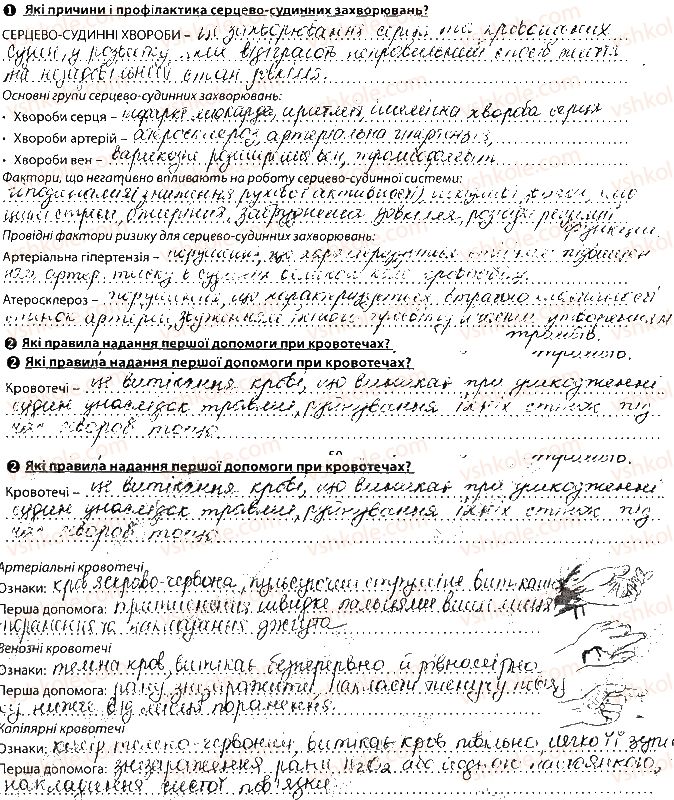 1 Які причини і профілактика серцево-судинних захворювань?
СЕРЦЕВО-СУДИННІ ХВОРОБИ – це захворювання серця та кровоносних
судин, у розвитку яких відіграють неправильний спосіб життя
та
Основні групи серцево-судинних захворювань:
• Хвороби серця – інфаркт міокарда, ішемічна хвороба серця
• Хвороби артерій – атеросклероз, артеріальна гіпертензія,
• Хвороби вен – варикозні розширення вен, тромбофлебіт
Фактори, що негативно впливають на роботу серцево-судинної системи:
гіподинамія (зниження рухової активності)
стреси, ожиріння, забруднення довкілля, розлад
функцій
Провідні фактори ризику для серцево-судинних захворювань:
Артеріальна гіпертензія – порушення, що характеризується
артер. тиску в судинах великого кола кровообігу
Атеросклероз – порушення, що характеризується втратою еластичності
стінок артерій, звуженням їхнього просвіту й утворенням
тромбів.
2 Які правила надання першої допомоги при кровотечах?
2 Які правила надання першої допомоги при кровотечах?
Кровотечі – це витікання крові, що виникає при ушкодженні
судин унаслідок травми, руйнування їхніх стінок під
час хвороб тощо
2 Які правила надання першої допомоги при кровотечах?
Кровотечі – це витікання крові, що виникає при ушкодженні
судин унаслідок травми, руйнування їхніх стінок під
час хвороб тощо
Артеріальні кровотечі
Ознаки: кров яскраво-червона, пульсуючим струменем витікає
Перша допомога: притиснення швидке пальцями вище місця
поранення й накладання джгута
Венозні кровотечі
Ознаки: темна кров, витікає безперервно й рівномірно
Перша допомога: рану знезаразити, накласти тиснучу пов'яз
ку нижче від місця поранення
Капілярні кровотечі
Ознаки: колір темно-червоний, витікає кров повільно, легко її зупин
Перша допомога: знезараження рани H2O2 або йодною настоянкою,
накладення чистої пов'язки